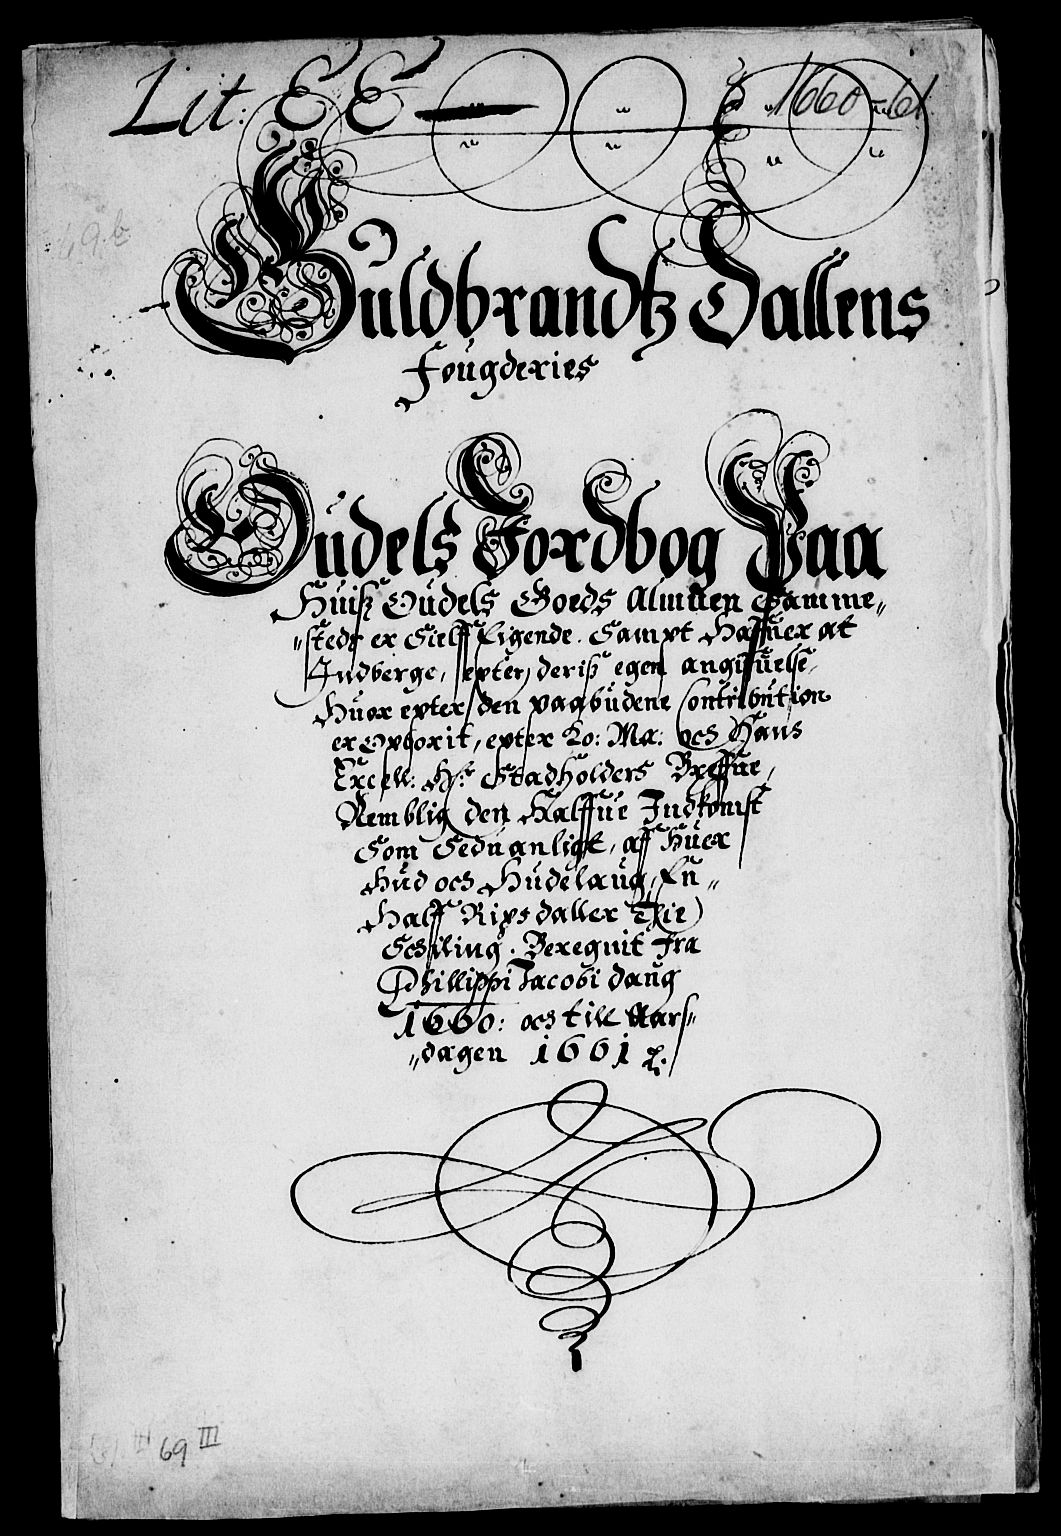 Lit: EE — 1660-61.
49.b
Guldbrandtz Dallens
Fougderies
Oudels Jordbog Paa
Huiß Oudels Goeds Almuen Samme„
„steds er Sielff Eigende. Sampt Haffuer at
Indberge, epter deriß egen angiffuelse,
Huor epter den paabudene Contribution
er Opborit, epter Ko: Ma: och Hans
Excell: Hr Stadholders Breffue,
Nemblig den Halffue Indkomst
Som Seduanligt, aff Huer
Hud och Hudelaug, En„
Half Rixsdaller Thie
Schiling. Beregnit fra
Phillippi Jacobi daug
1660: och till Aars„
„dagen 1661
69 III